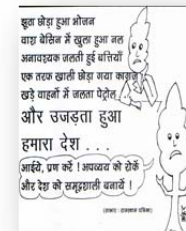 झूठा छोड़ा हुआ भोजन
वाश बेसिन में खुला हुआ नल
अनावश्यक जलती हुई बत्तियाँ
एक तरफ खाली छोड़ा गया कागज
खड़े वाहनों में जलता पेट्रोल
और उजड़ता हुआ
हमारा देश . . .
आईये, प्रण करें ! अपव्यय को रोकें
और देश को समृद्धशाली बनायें !
(साभार : राजस्थान पत्रिका)